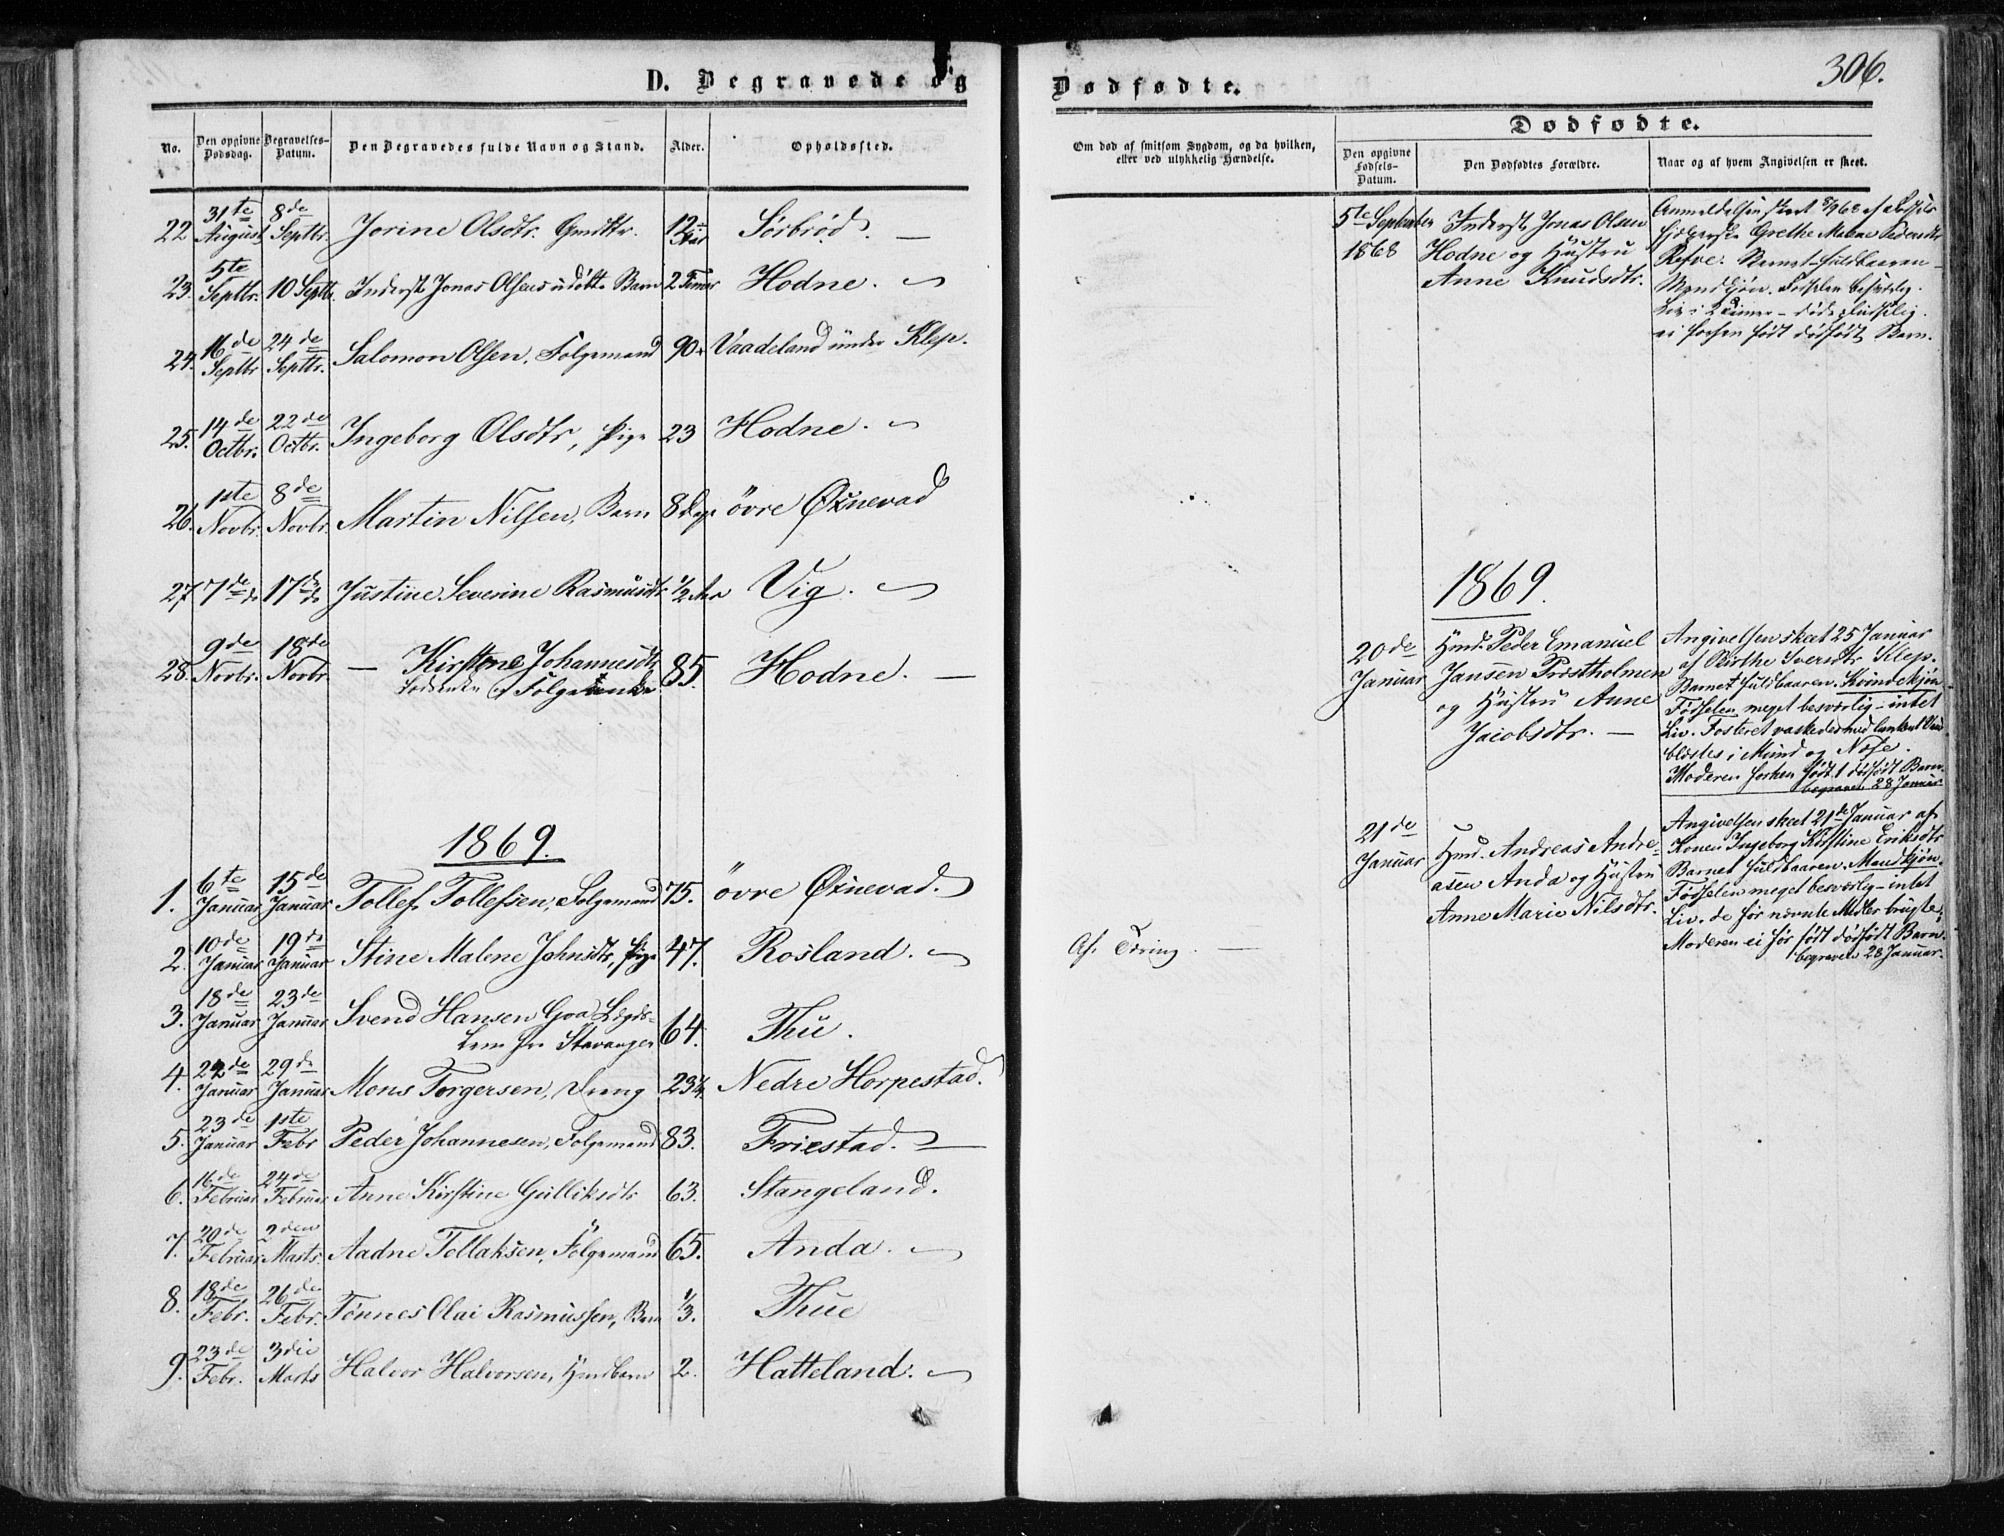 D. Begravede og
No.
Den opgivne Dødsdag.
Begravelses-Datum.
Den Begravedes fulde Navn og Stand.
Alder.
Opholdssted.
22 31te August 8de Septbr. Jorine Olsdtr. Gmdtr. 12 Aar Sørbrød. —
23. 5te Septbr. 10 Septbr. Inderst Jonas Olsens udøbte Barn 2 Timer Hodne.
24. 16de Septbr 24de Septbr. Salomon Olsen, Følgemand 90. Vaadeland under Klep.
25. 14de Octbr. 22de Octbr. Ingeborg Olsdtr, Pige 23 Hodne.
26. 1ste Novbr. 8de Novbr. Martin Nilsen, Barn 8 Dage övre Öxnevad
27 7de do 17de do Justine Severine Rasmusdtr ½ Aar Vig.
28. 9de Novbr. 18de Novbr. — Kirstene Johannesdtr 85. Hodne. —
Følgeenke
1869.
1. 6te Januar 15de Januar Tollef Tollefsen, Følgemand 75. övre Öxnevad.
2. 10de Januar 19de Januar Stine Malene Johnsdtr, Pige 47. Rosland.
3. 18de Januar 23de Januar Svend Hansen Goa Lægds-
Lem fra Stavanger 64. Thu.
4. 22de Januar 29de Januar Mons Torgersen, Dreng 23¼ Nedre Horpestad.
5. 23de Januar 1ste Febr Peder Johannesen, Følgemand 83. Friestad. —
6. 16de Februar 24de Februar Anne Kirstine Gulliksdtr 63. Stangeland.
7. 20de Februar 2den Marts. Aadne Tollaksen, Følgemand 65. Anda.
8. 18de Febr. 26de Febr. Tønnes Olai Rasmussen, Barn ⅓. Thue
9. 23de Febr. 3die Marts Halvor Halvorsen, Hmdbarn 2. Hatteland.
Dødfødte.
306.
Om død af smitsom Sygdom, og da hvilken,
eller ved ulykkelig Hændelse.
Dødfødte.
Den opgivne Fødsels-Datum.
Den Dødfødtes Forældre.
Naar og af hvem Angivelsen er skeet.
5te September 1868
Inderst Jonas Olsen
Hodne og Hustru
Anne Knudsdtr.
Anmeldelsen skeet 8/9 68 af
Grethe Malene Pedersdtr
Refve. Barnet fuldbaaren
Mandkjøn. Fødselen besværlig.
Liv i 2 Timer –
ei forhen født dødfødt Barn.
1869.
20de Januar
Hmd. Peder Emanuel
Jansen Prøstholmen
og Hustru Anne
Jacobsdtr. —
Angivelsen skeet 25 Januar
af Birthe Iversdtr Klep.
Barnet fuldbaaren. Kvindekjøn
Fødselen meget besværlig – intet
Liv. Fosteret vaskedes med lunkent Vand
blæstes i Mund og Næse.
Moderen forhen født 1 dødfødt Barn.
begravet 28 Januar.
21de Januar
Hmd. Andreas Andre-
asen Anda og Hustru
Anne Marie Nilsdtr.
Angivelsen skeet 21de Januar af
Konen Ingeborg Kirstine Eriksdtr
Barnet fuldbaaren. Mandkjøn.
Fødselen meget besværlig – intet
Liv. de før nævnte Midler brugte.
Moderen ei før født dødfødt Barn.
begravet 28 Januar.
Af Tæring. —